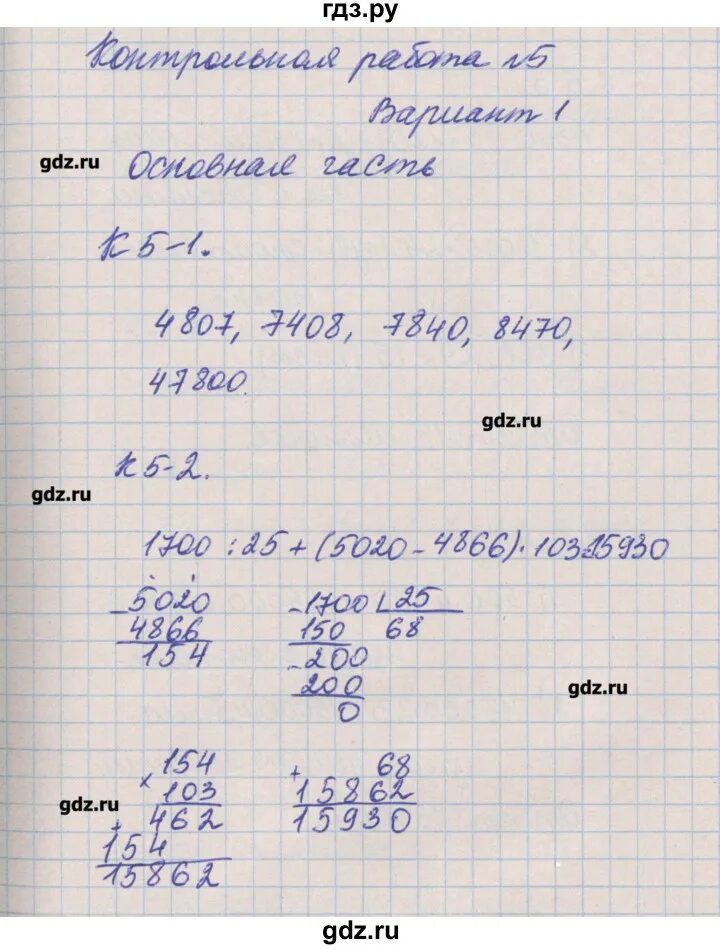 гдз.ру
Контрольная работа №5
Вариант 1
gdz.ru
Основная часть
К 5-1.
4807, 7408, 7840, 8470,
47800
gdz.ru
К 5-2.
gdz.ru
1700 : 25 + (5020 - 4866) · 103 = 15930
- 5020
4866
154
- 1700 | 25
150 68
- 200
200
0
gdz.ru
× 154
103
462
+ 154
15862
gdz.ru
+ 68
15862
15930
gdz.ru